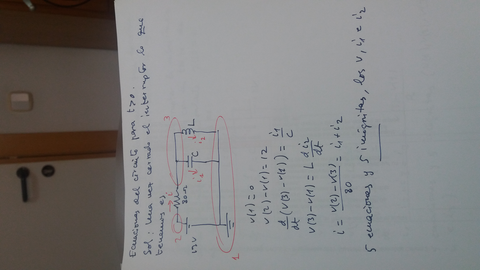 Ecuaciones del circuito para t>0.
Sol: Una vez cerrado el interruptor lo que
tenemos es,
3
2
i
80 Ω
C
L
i₁
i₂
12V
1
v(1)=0
v(2)-v(1)=12
d/dt (v(3)-v(1)) = i₁/C
v(3)-v(1)=L di₂/dt
i = (v(2)-v(3))/80 = i₁+i₂
5 ecuaciones y 5 incógnitas, los v, i₁ e i₂